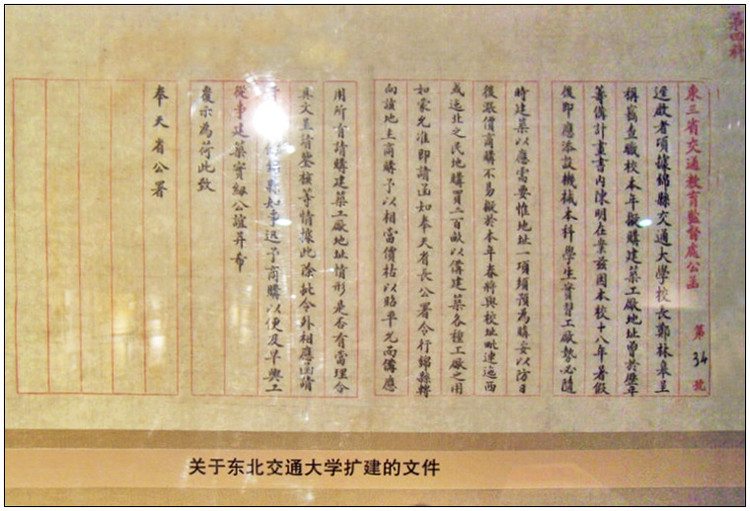 第四科
東三省交通教育監督處公函 第34號
逕啟者項據錦縣交通大學校長鄭林皋呈
稱竊查職校本年擬購建築工廠地址曾於歷年
籌備計畫書內陳明在案茲因本校十八年暑假
後即應添設機械本科學生實習工廠勢必隨
時建築以應需要惟地址一項須預為購妥以防日
後漲價商購不易擬於本年春將與校址毗連迤西
或迤北之民地購買二百畝以備建築各種工廠之用
如蒙允准即請函知奉天省長公署令行錦縣轉
向該地主商購予以相當價格以昭平允而備應
用所有請購建築工廠地址情形是否有當理合
具文呈請鑒核等情據此除批令外相應函請
錦縣知事迅予商購以便及早興工
從事建築實紉公誼并希
覆示為荷此致
奉天省公署
关于东北交通大学扩建的文件